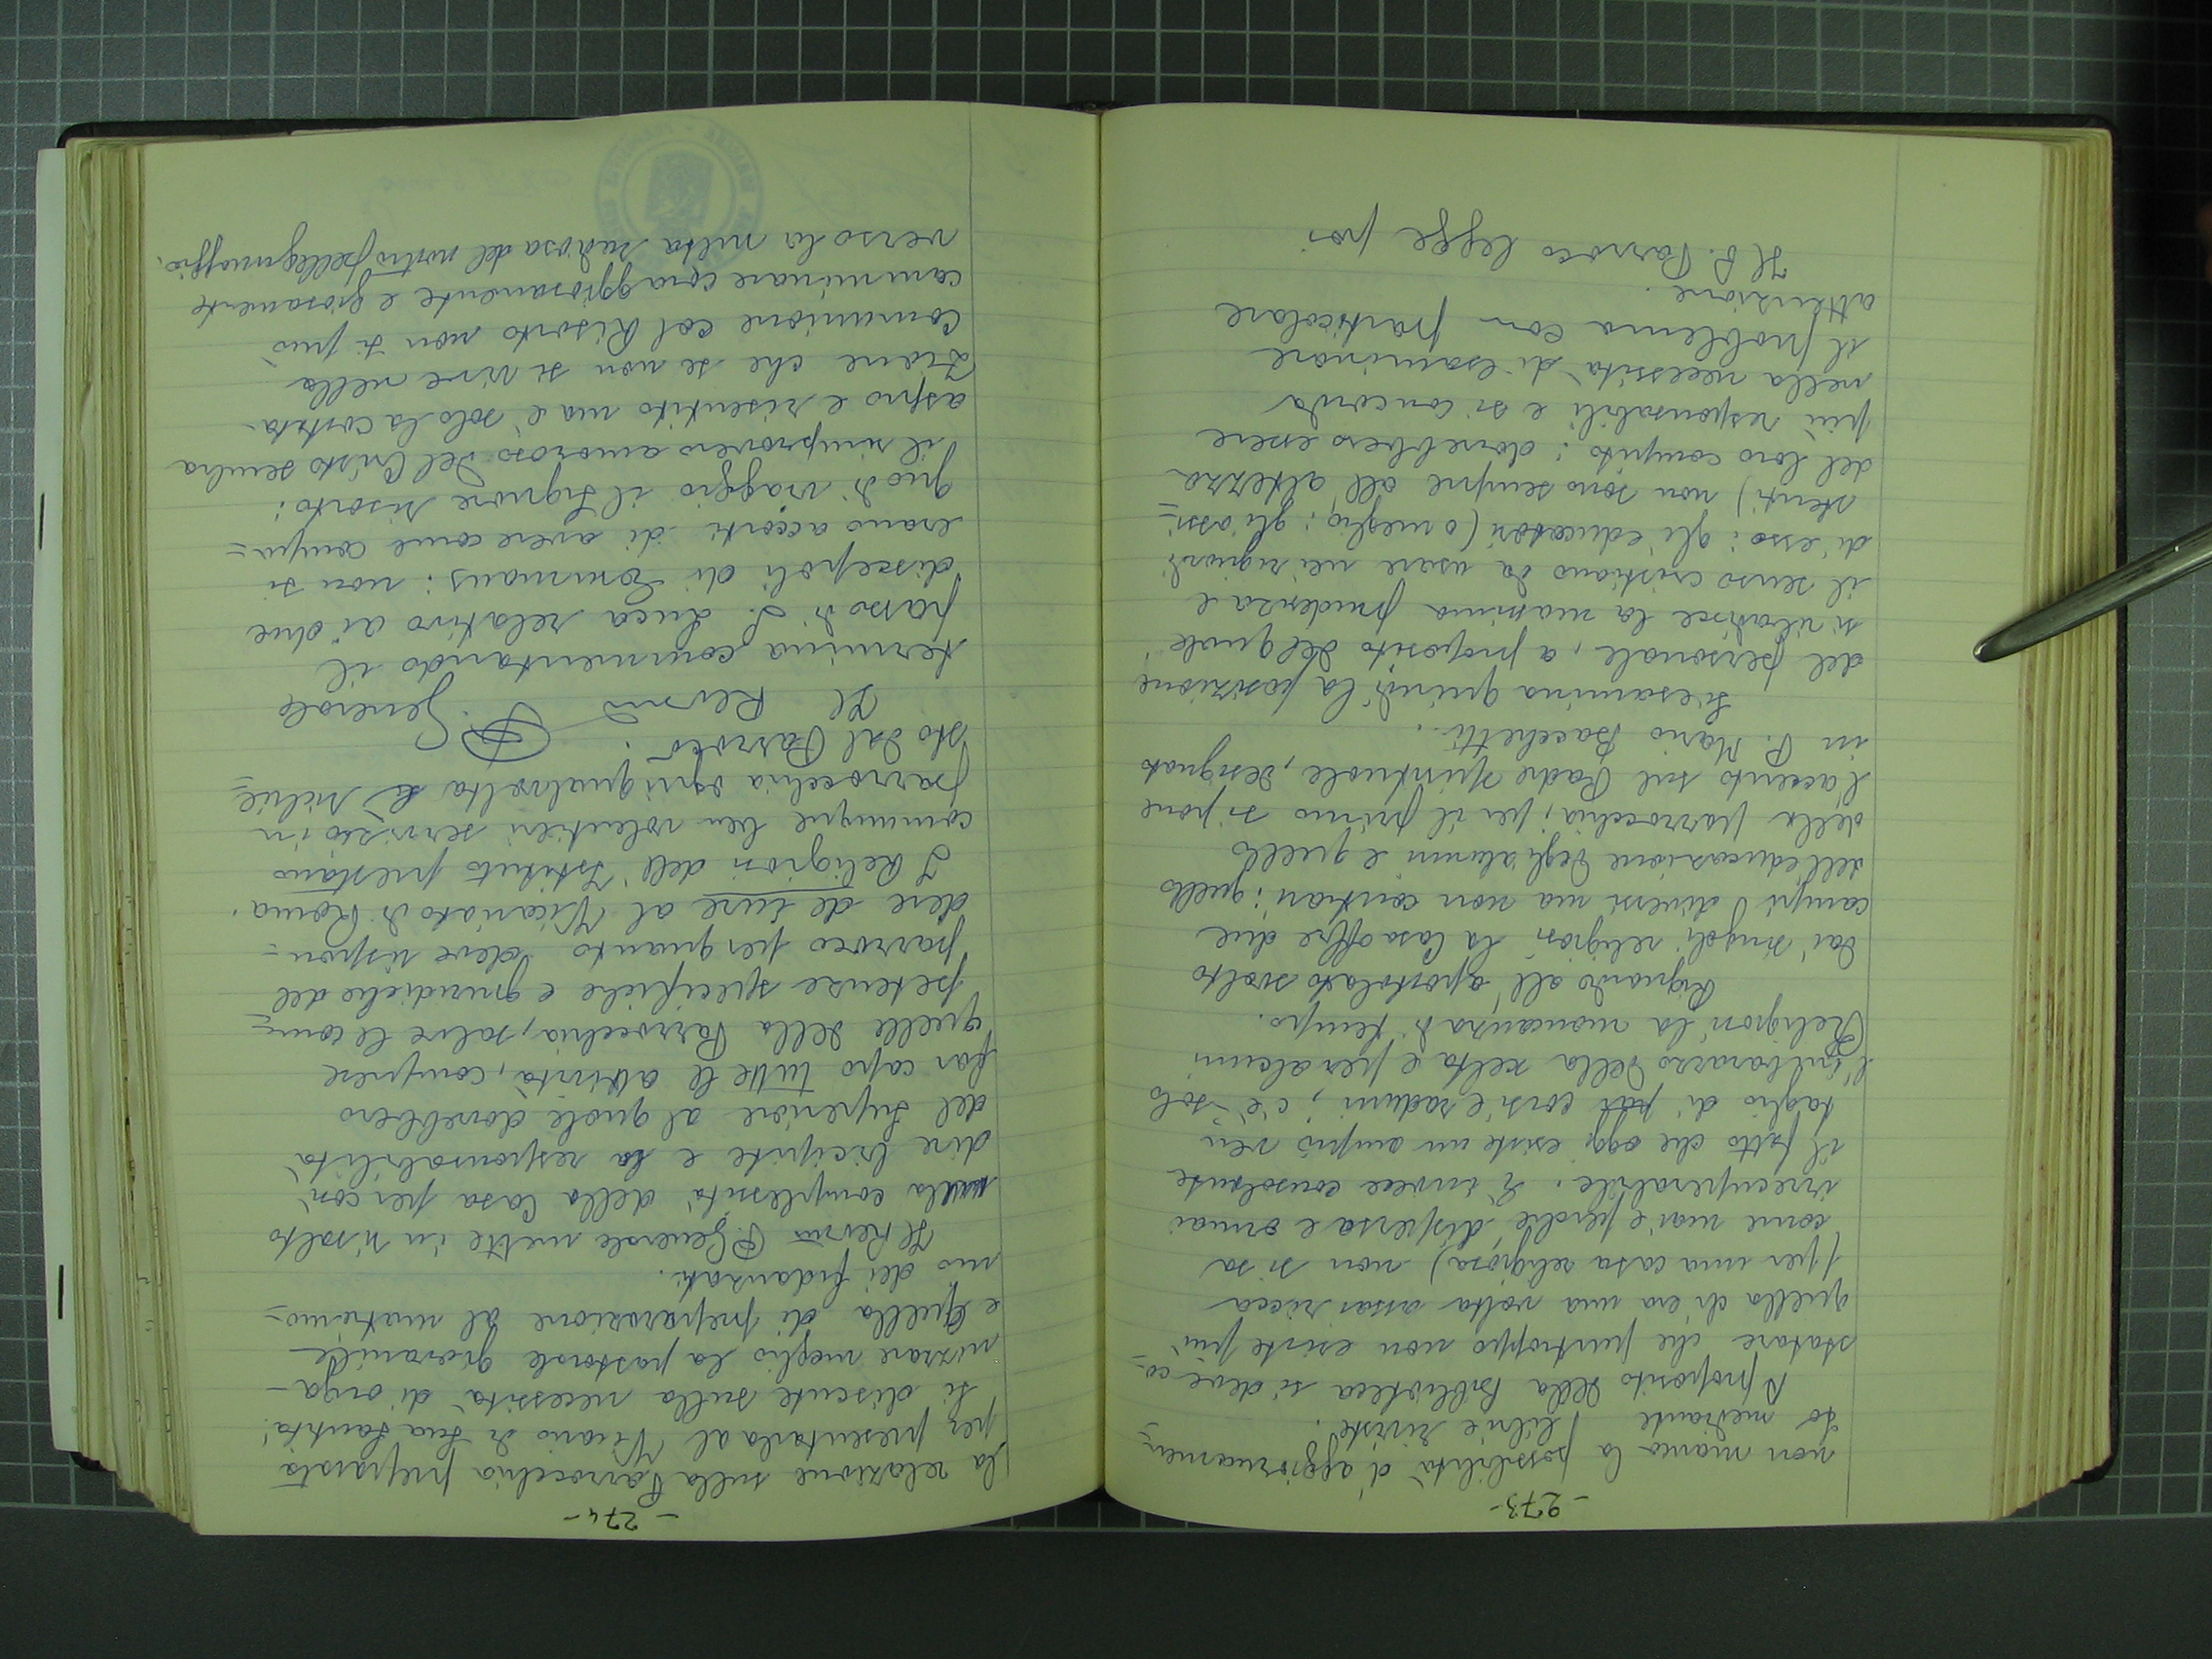 - 273 -
non manca la possibilità d'aggiornamen=
to mediante libri e riviste.
A proposito della Biblioteca si deve co=
statare che purtroppo non esiste più
quella di era una volta assai ricca
(per una casa religiosa) non si sa
come mai e perché dispersa e ormai
irrecuperabile. È invece consolante
il fatto che oggi esiste un ampio ven
taglio di corsi e raduni; c'è solo
l'imbarazzo della scelta e per alcuni
Religiosi la mancanza di tempo.
Riguardo all'apostolato svolto
dai singoli religiosi la Casa offre due
campi diversi ma non contrari: quello
dell'educazione degli alunni e quello
della parrocchia; per il primo si pone
l'accento sul Padre spirituale, designato
in P. Mario Bacchetti.
Si esamina quindi la posizione
del personale, a proposito del quale
si ribadisce la massima prudenza e
il senso cristiano da usare nei riguardi
di esso: gli educatori (o meglio: gli assi=
stenti) non sono sempre all'altezza
del loro compito: dovrebbero essere
più responsabili e si concorda
nella necessità di esaminare
il problema con particolare
attenzione.
Il P. Parroco legge poi
- 274 -
la relazione sulla Parrocchia preparata
per presentarla al Vicario di Sua Santità.
Si discute sulla necessità di orga-
nizzare meglio la pastorale giovanile
e quella di preparazione al matrimo=
nio dei fidanzati.
Il Rev.mo P. Generale mette in risalto
la complessità della Casa per così
dire bicipite e la responsabilità
del Superiore al quale dovrebbero
far capo tutte le attività, comprese
quelle della Parrocchia, salve le com=
petenze specifiche e giuridiche del
parroco per quanto deve rispon=
dere de iure al Vicariato di Roma.
I Religiosi dell'Istituto prestano
comunque ben volentieri servizio in
parrocchia ogniqualvolta è richie=
sto dal Parroco.
Il Rev.mo P. Generale
termina commentando il
passo di S. Luca relativo ai due
discepoli di Emmaus: non si
erano accorti di avere come compa=
gno di viaggio il Signore risorto:
il rimprovero amoroso del Cristo sembra
aspro e risentito ma è solo la constata-
zione che se non si vive nella
Comunione col Risorto non si può
camminare coraggiosamente e gioiosamente
verso la meta radiosa del nostro pellegrinaggio.